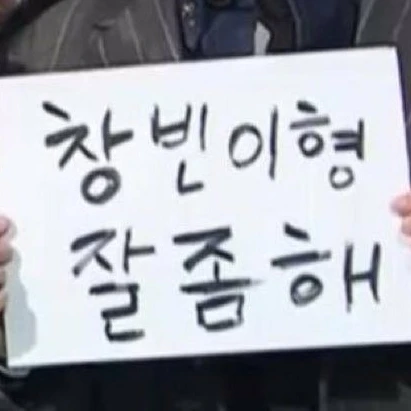 창빈이형
잘좀해